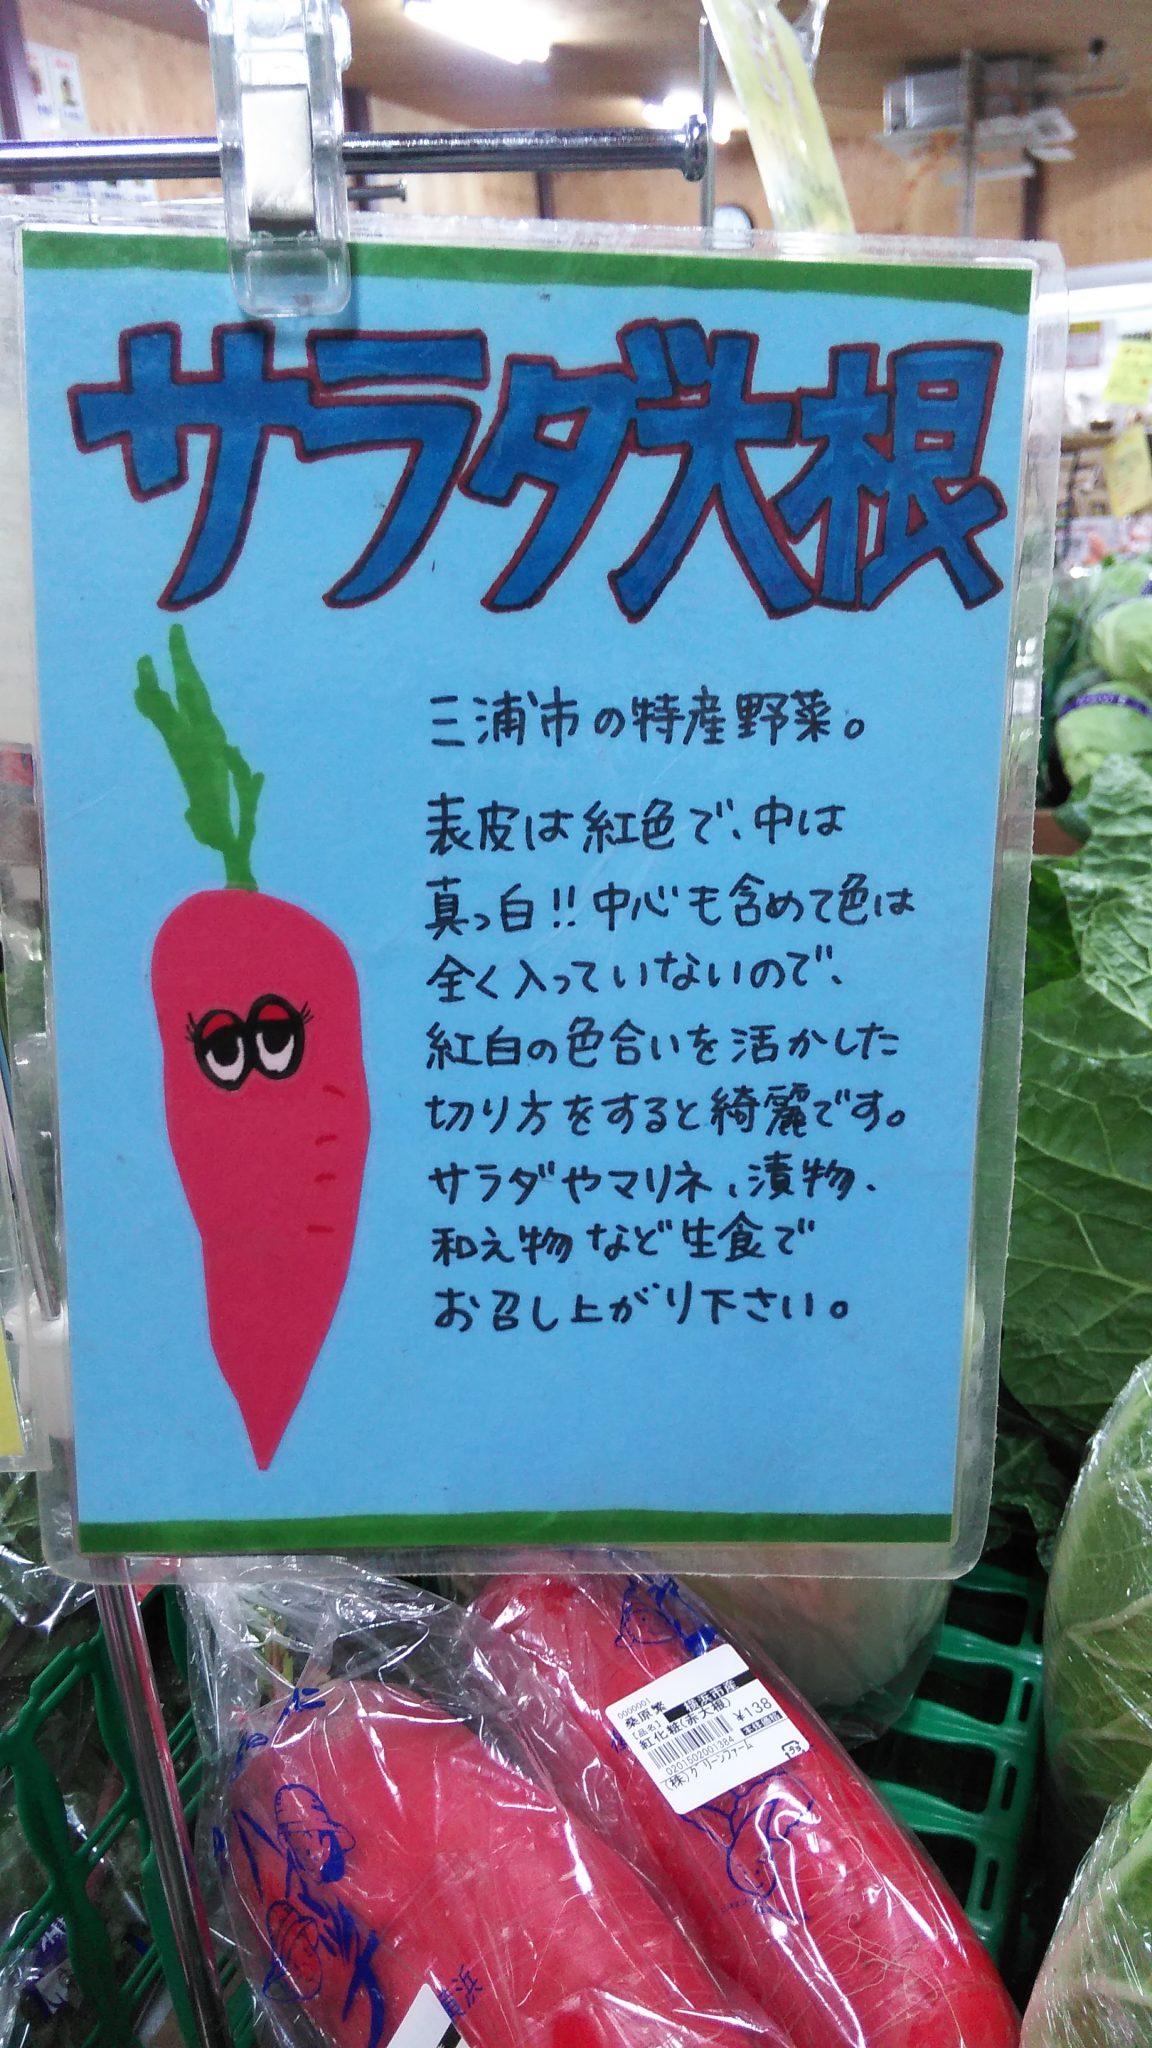 サラダ大根
三浦市の特産野菜。
表皮は紅色で、中は
真っ白!!中心も含めて色は
全く入っていないので、
紅白の色合いを活かした
切り方をすると綺麗です。
サラダやマリネ、漬物、
和え物など生食で
お召し上がり下さい。
0000001
桑原繁
横浜市産
[品名]
紅化粧(赤大根)
¥138
本体価格
0201502001384
(株)グリーンファーム
横浜